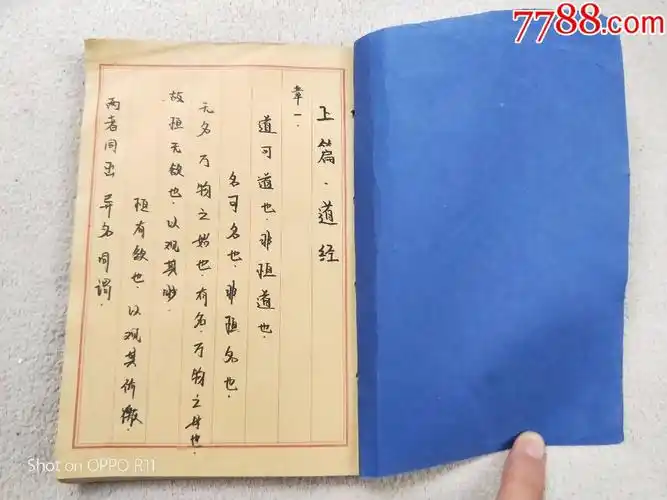 上篇·道经
章一.
道可道也.非恒道也.
名可名也.非恒名也.
无名万物之始也.有名.万物之母也.
故恒无欲也.以观其眇.
恒有欲也.以观其所徼.
两者同出异名同谓.
7788.com
Shot on OPPO R11